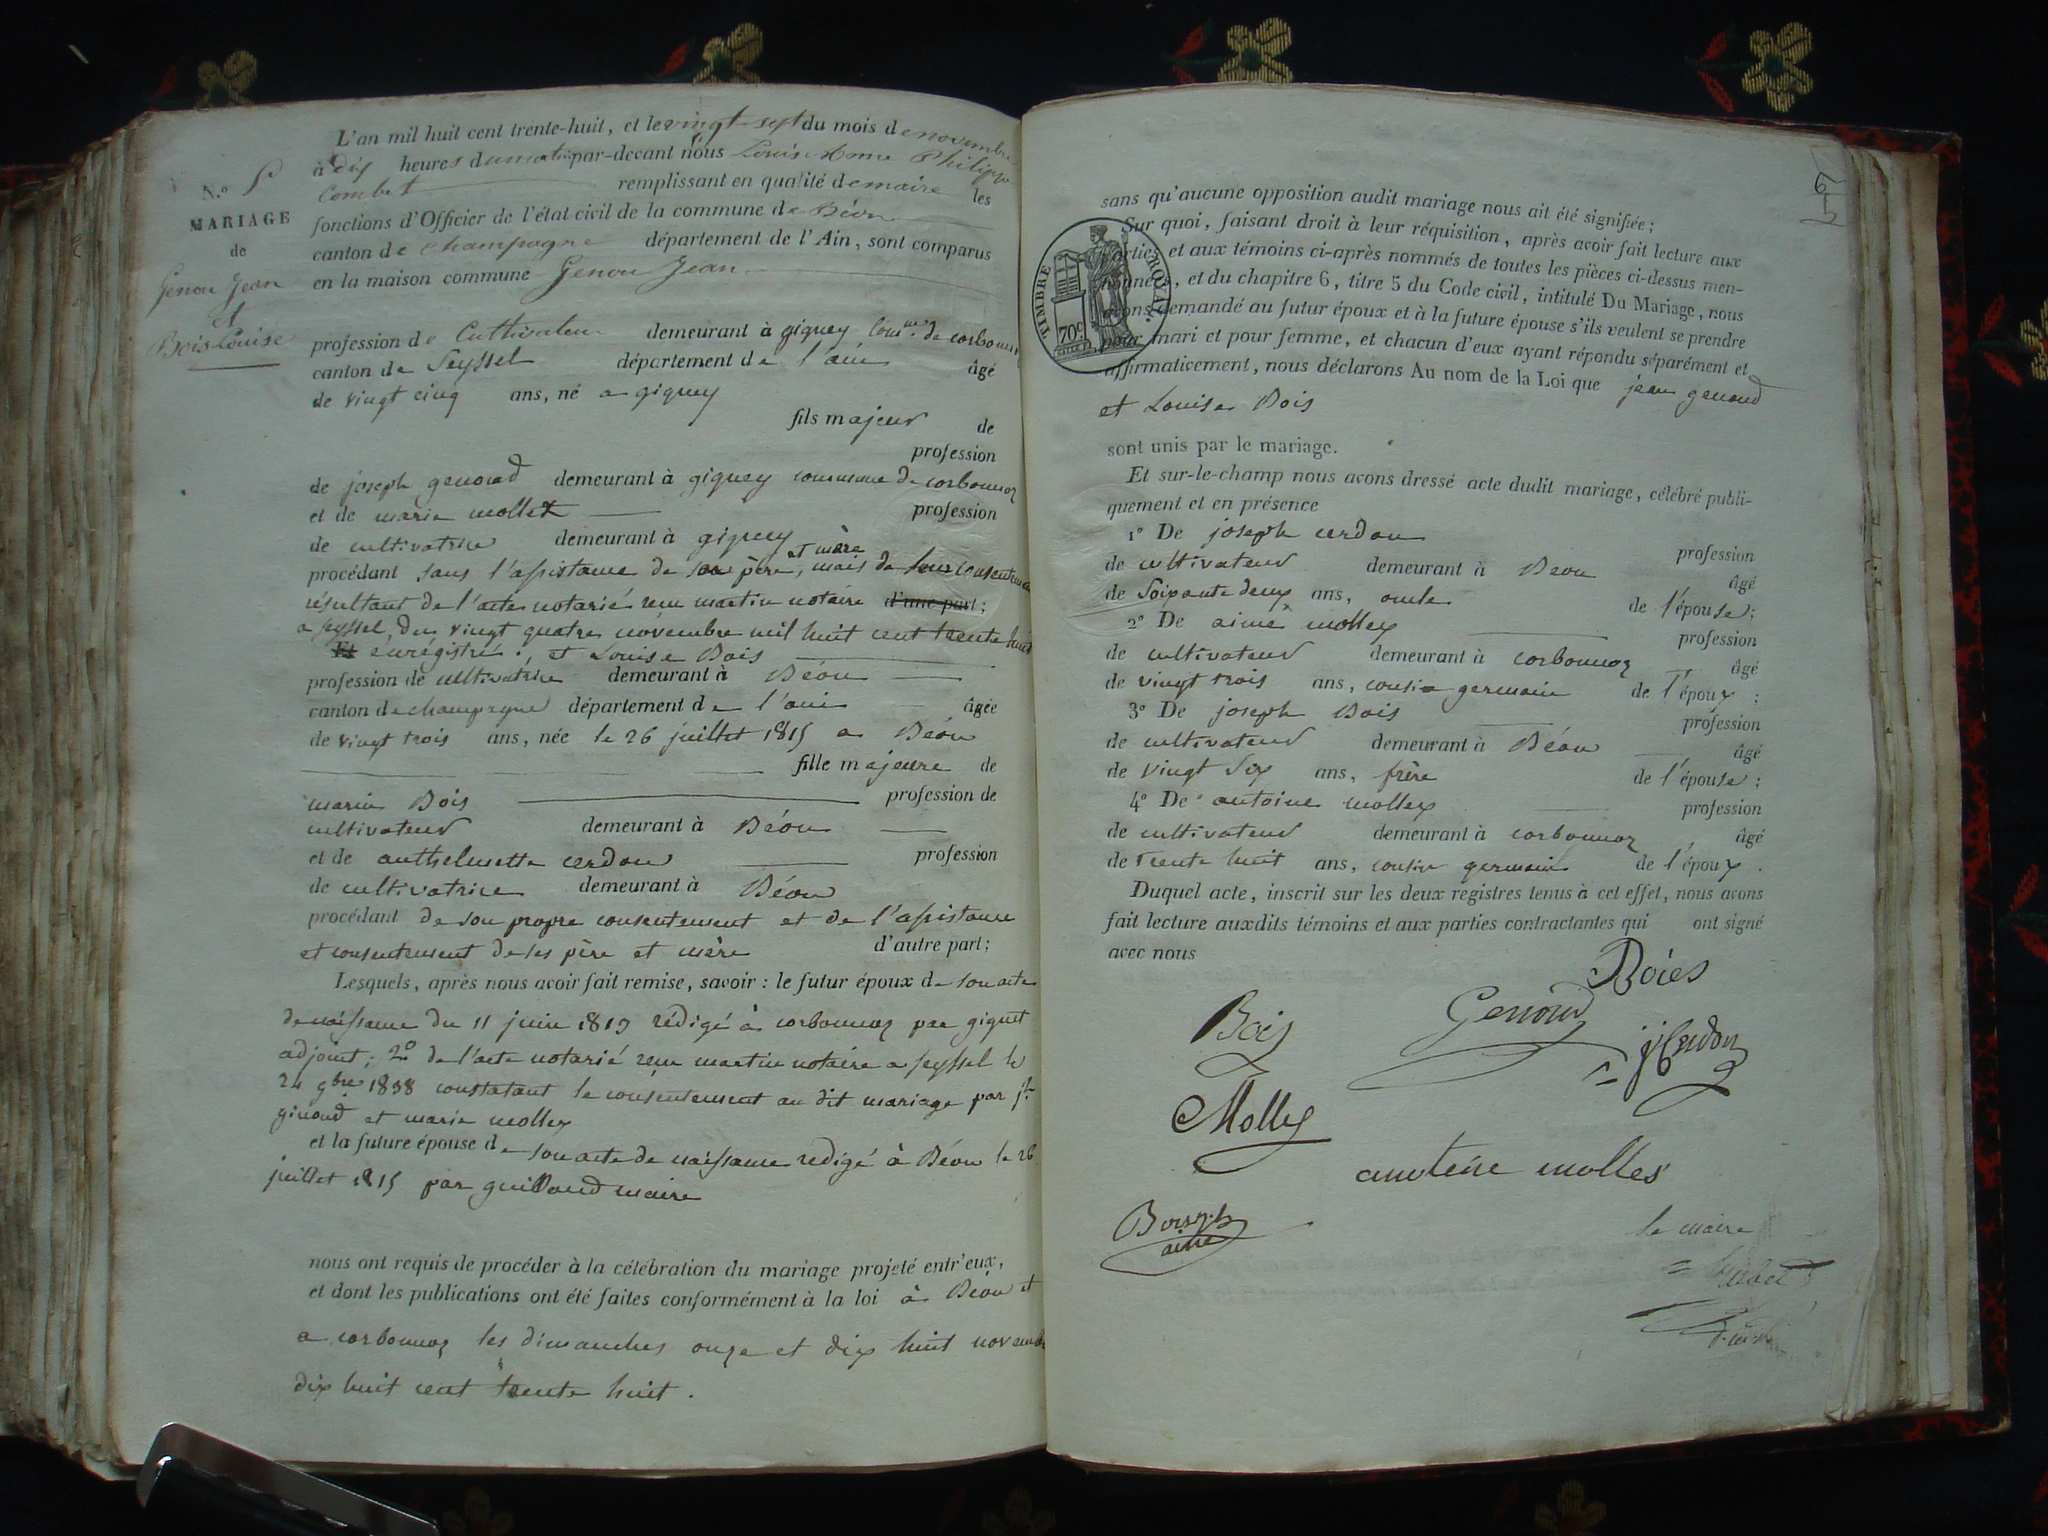 L'an mil huit cent trente-huit, et le vingt sept du mois de novembre
à dix heures du matin par-devant nous Louis Philippe
Combet remplissant en qualité de maire les
fonctions d'Officier de l'état civil de la commune de Béon
canton de champagne département de l'Ain, sont comparus
en la maison commune Genou Jean
N.o
MARIAGE
de
Genou Jean
et
Bois Louise
profession de Cultivateur demeurant à gignez comne de corbonnoz
canton de Seyssel département de l'ain âgé
de vingt cinq ans, né a gignez
fils majeur de
profession
de joseph genoud demeurant à gignez commune de corbonnoz
et de marie mollex profession
de cultivatrice demeurant à gignez
et mère
procédant sans l'assistance de son père, mais de leur consentement
résultant de l'acte notarié reçu martin notaire d'une part;
a seyssel, du vingt quatre novembre mil huit cent trente huit
Et enrégistré. et Louise Bois
profession de cultivatrice demeurant à Béon
canton de champagne département de l'ain âgée
de vingt trois ans, née le 26 juillet 1815 a Béon
fille majeure de
marin Bois profession de
cultivateur demeurant à Béon
et de anthelmette cerdon profession
de cultivatrice demeurant à Béon
procédant de son propre consentement et de l'assistance
et consentement de ses père et mère d'autre part;
Lesquels, après nous avoir fait remise, savoir : le futur époux de son acte
de naissance du 11 juin 1813 rédigé à corbonnoz par giguet
adjoint; 2o de l'acte notarié reçu martin notaire a seyssel le
24 9bre 1838 constatant le consentement au dit mariage par jh
genoud et marie mollex
et la future épouse de son acte de naissance redigé à Béon le 26
juillet 1815 par guillaud maire
nous ont requis de procéder à la célébration du mariage projeté entr'eux,
et dont les publications ont été faites conformément à la loi à Béon et
a corbonnoz les dimanches onze et dix huit novembre
dix huit cent trente huit.
sans qu'aucune opposition audit mariage nous ait été signifiée;
Sur quoi, faisant droit à leur réquisition, après avoir fait lecture aux
parties et aux témoins ci-après nommés de toutes les pièces ci-dessus men-
tionnées, et du chapitre 6, titre 5 du Code civil, intitulé Du Mariage, nous
avons demandé au futur époux et à la future épouse s'ils veulent se prendre
pour mari et pour femme, et chacun d'eux ayant répondu séparément et
affirmativement, nous déclarons Au nom de la Loi que jean genoud
et Louise Bois
TIMBRE ROYAL
70c
sont unis par le mariage.
Et sur-le-champ nous avons dressé acte dudit mariage, célébré publi-
quement et en présence
1o De joseph cerdon
profession
de cultivateur demeurant à Béon âgé
de Soixante deux ans, oncle de l'épouse;
2o De aimé mollex profession
de cultivateur demeurant à corbonnoz âgé
de vingt trois ans, cousin germain de l'époux;
3o De joseph Bois profession
de cultivateur demeurant à Béon âgé
de vingt six ans, frère de l'épouse;
4o De antoine mollex profession
de cultivateur demeurant à corbonnoz âgé
de trente huit ans, cousin germain de l'époux.
Duquel acte, inscrit sur les deux régistres tenus à cet effet, nous avons
fait lecture auxdits témoins et aux parties contractantes qui ont signé
avec nous
Boies
Bois Genoud
j Cerdon
Mollex
antoine molles
Bois jh
aine
le maire